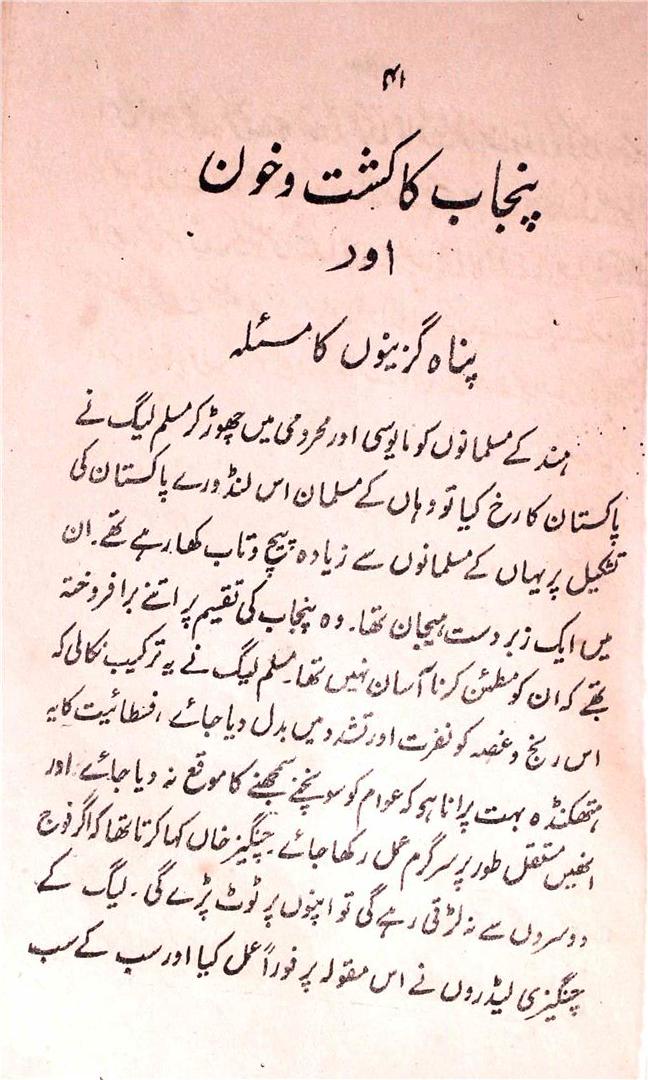 ۴۱
پنجاب کا کشت و خون
اور
پناہ گزینوں کا مسئلہ
ہند کے مسلمانوں کو مایوسی اور محرومی میں چھوڑ کر مسلم لیگ نے
پاکستان کا رخ کیا تو وہاں کے مسلمان اس لنڈورے پاکستان کی
تشکیل پر یہاں کے مسلمانوں سے زیادہ پیچ و تاب کھا رہے تھے۔ ان
میں ایک زبردست ہیجان تھا۔ وہ پنجاب کی تقیم پر اتنے برافروختہ
تھے کہ ان کو مطمئن کرنا آسان نہیں تھا۔ مسلم لیگ نے یہ ترکیب نکالی کہ
اس رنج و غصہ کو نفرت اور تشدد میں بدل دیا جائے، فسطائیت کا یہ
ہتھکنڈہ بہت پرانا ہو کہ عوام کو سوچنے سمجھنے کا موقع نہ دیا جائے اور
انھیں مستقل طور پر سرگرم عمل رکھا جائے۔ چنگیز خاں کہا کرتا تھا کہ اگر فوج
دوسروں سے نہ لڑتی رہے گی تو اپنوں پر ٹوٹ پڑے گی۔ لیگ کے
چنگیزی لیڈروں نے اس مقولہ پر فوراً عمل کیا اور سب کے سب